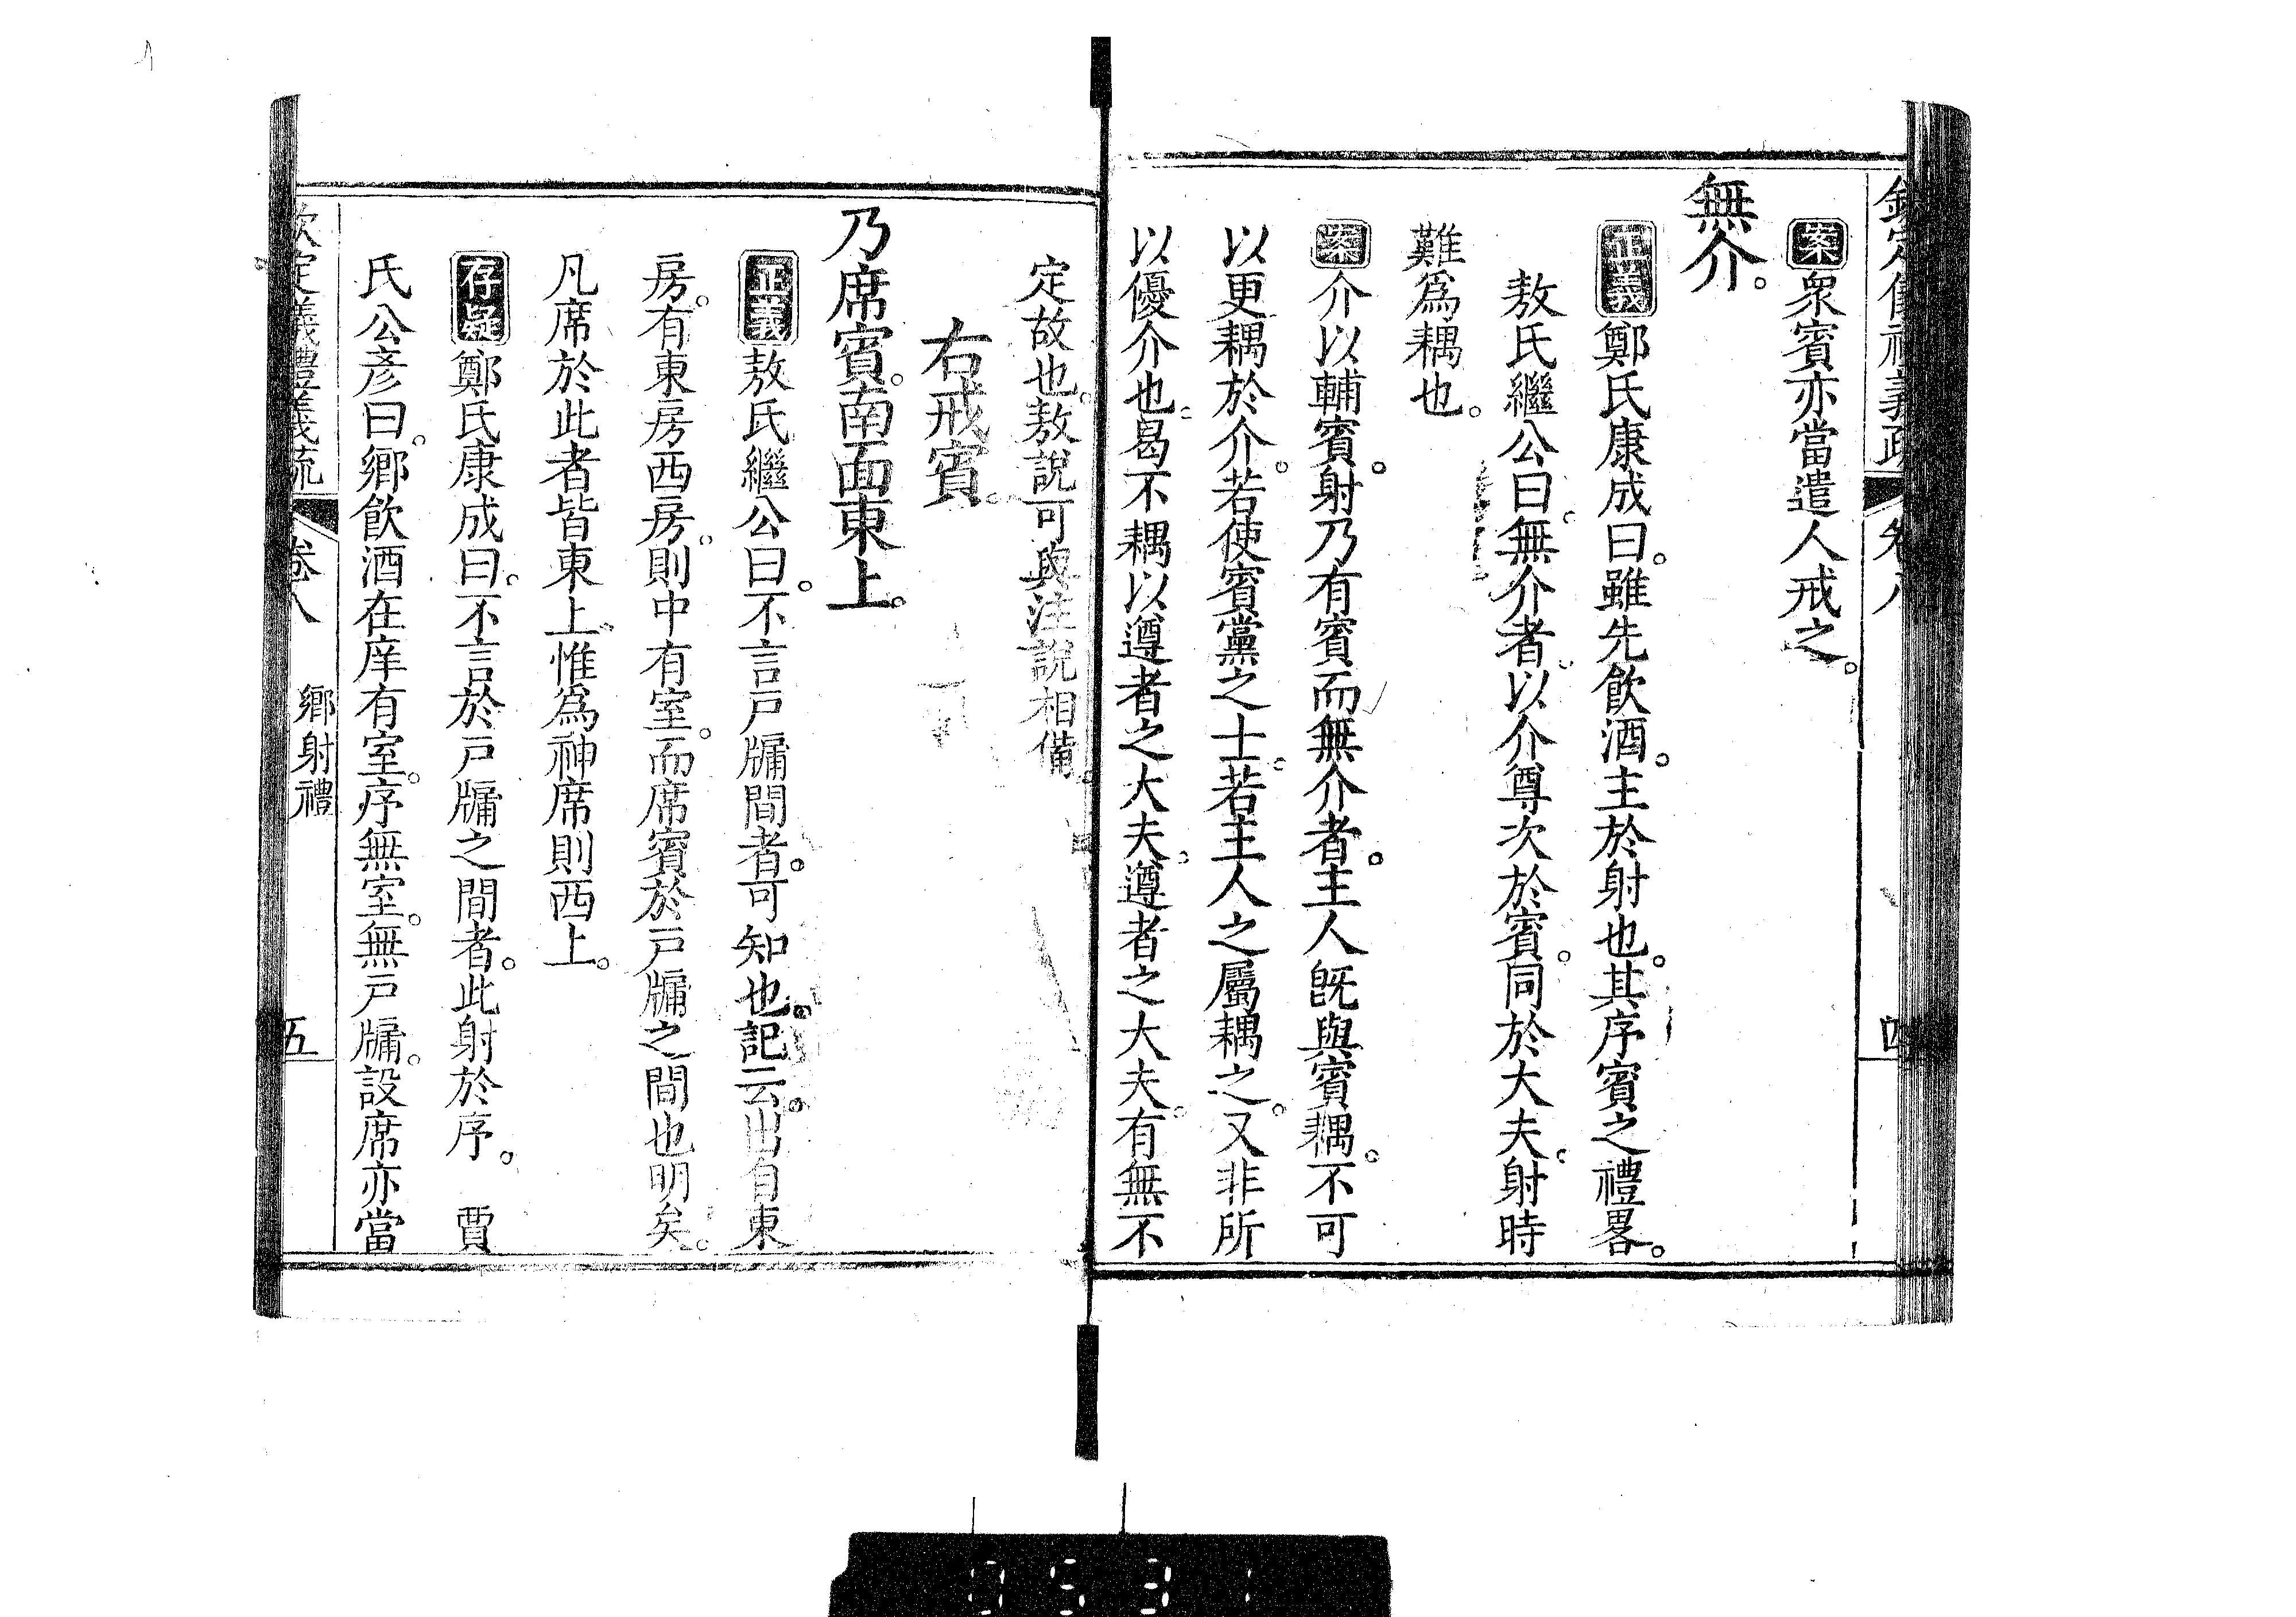 案衆賓亦當遣人戒之。
無介。
正義鄭氏康成曰。雖先飲酒。主於射也。其序賓之禮畧。
敖氏繼公曰。無介者。以介尊次於賓。同於大夫。射時
難爲耦也。
案介以輔賓。射乃有賓而無介者。主人旣與賓耦。不可
以更耦於介。若使賓黨之士。若主人之屬耦之。又非所
以優介也。曷不耦以遵者之大夫。遵者之大夫。有無不
定故也。敖說可與注說相備。
右戒賓。
乃席賓。南面東上。
正義敖氏繼公曰。不言戸牖間者。可知也。記云。出自東
房。有東房西房。則中有室。而席賓於戸牖之間也明矣。
凡席於此者皆東上。惟爲神席則西上。
存疑鄭氏康成曰。不言於戸牖之間者。此射於序。 賈
氏公彥曰。鄉飲酒在庠有室。序無室。無戸牖。設席亦當
欽定儀禮義疏 卷八 鄉射禮 五